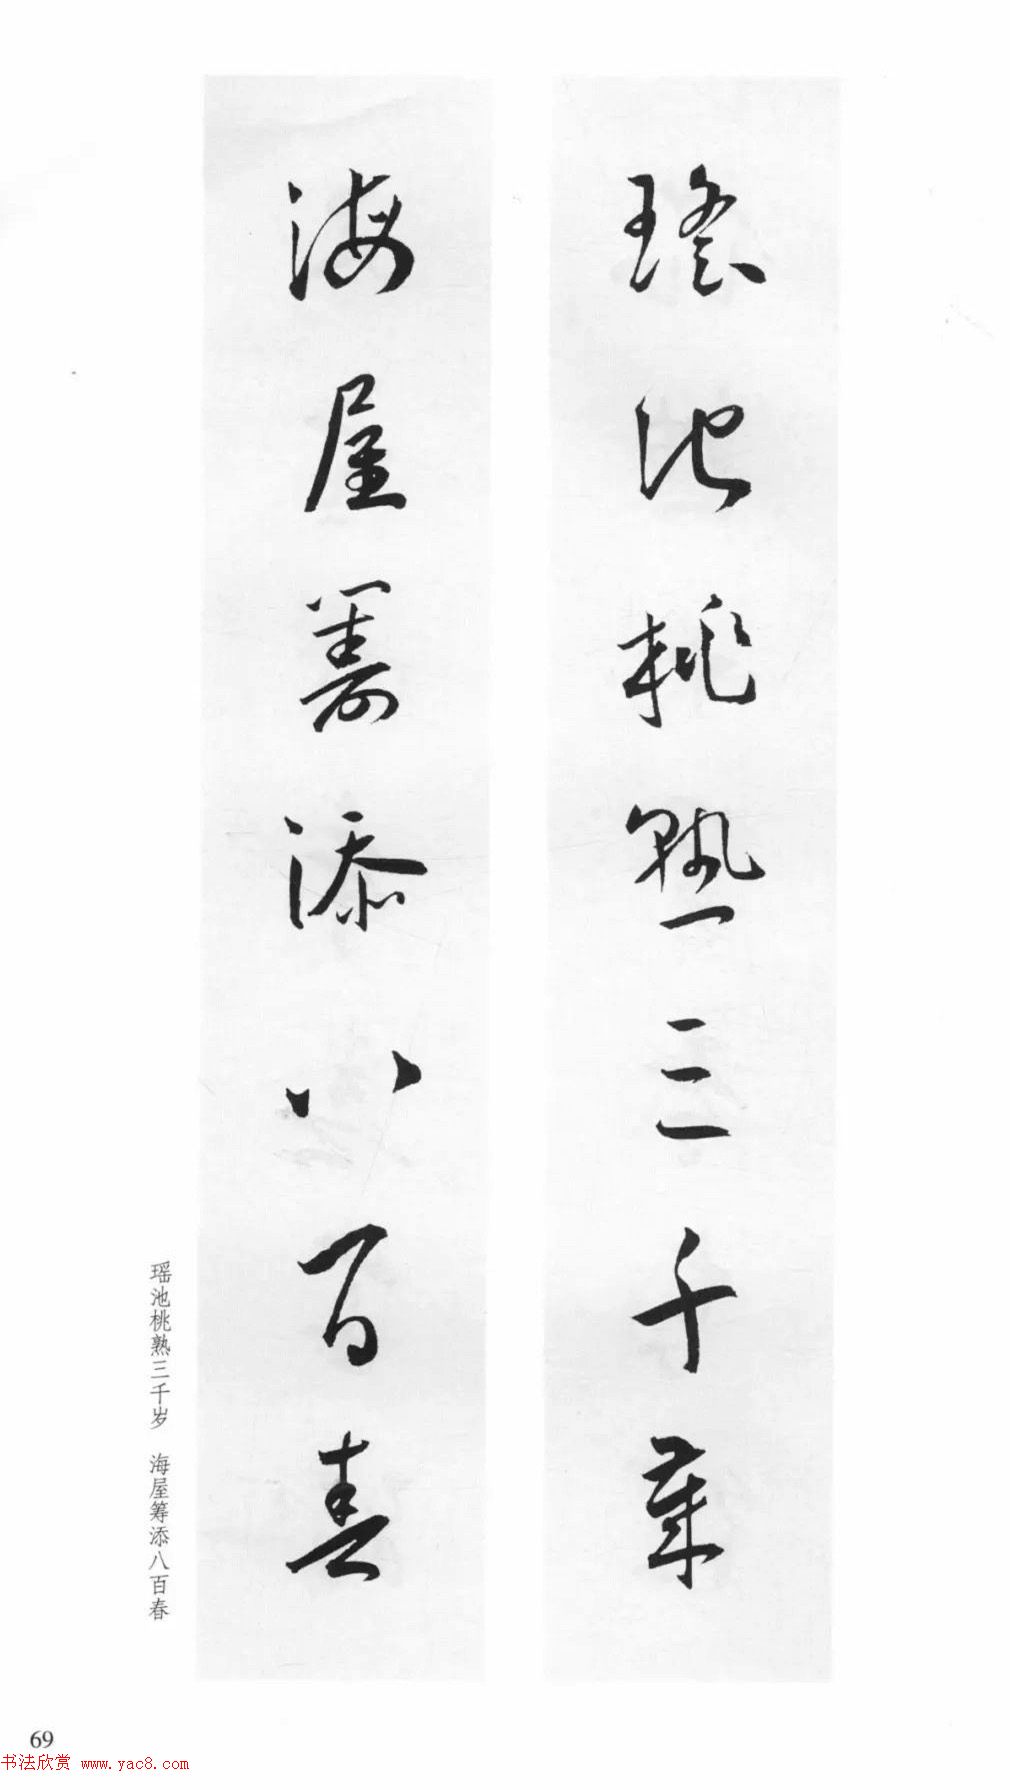 瑶池桃熟三千岁
海屋筹添八百春
瑶池桃熟三千岁 海屋筹添八百春
69
书法欣赏 www.yac8.com